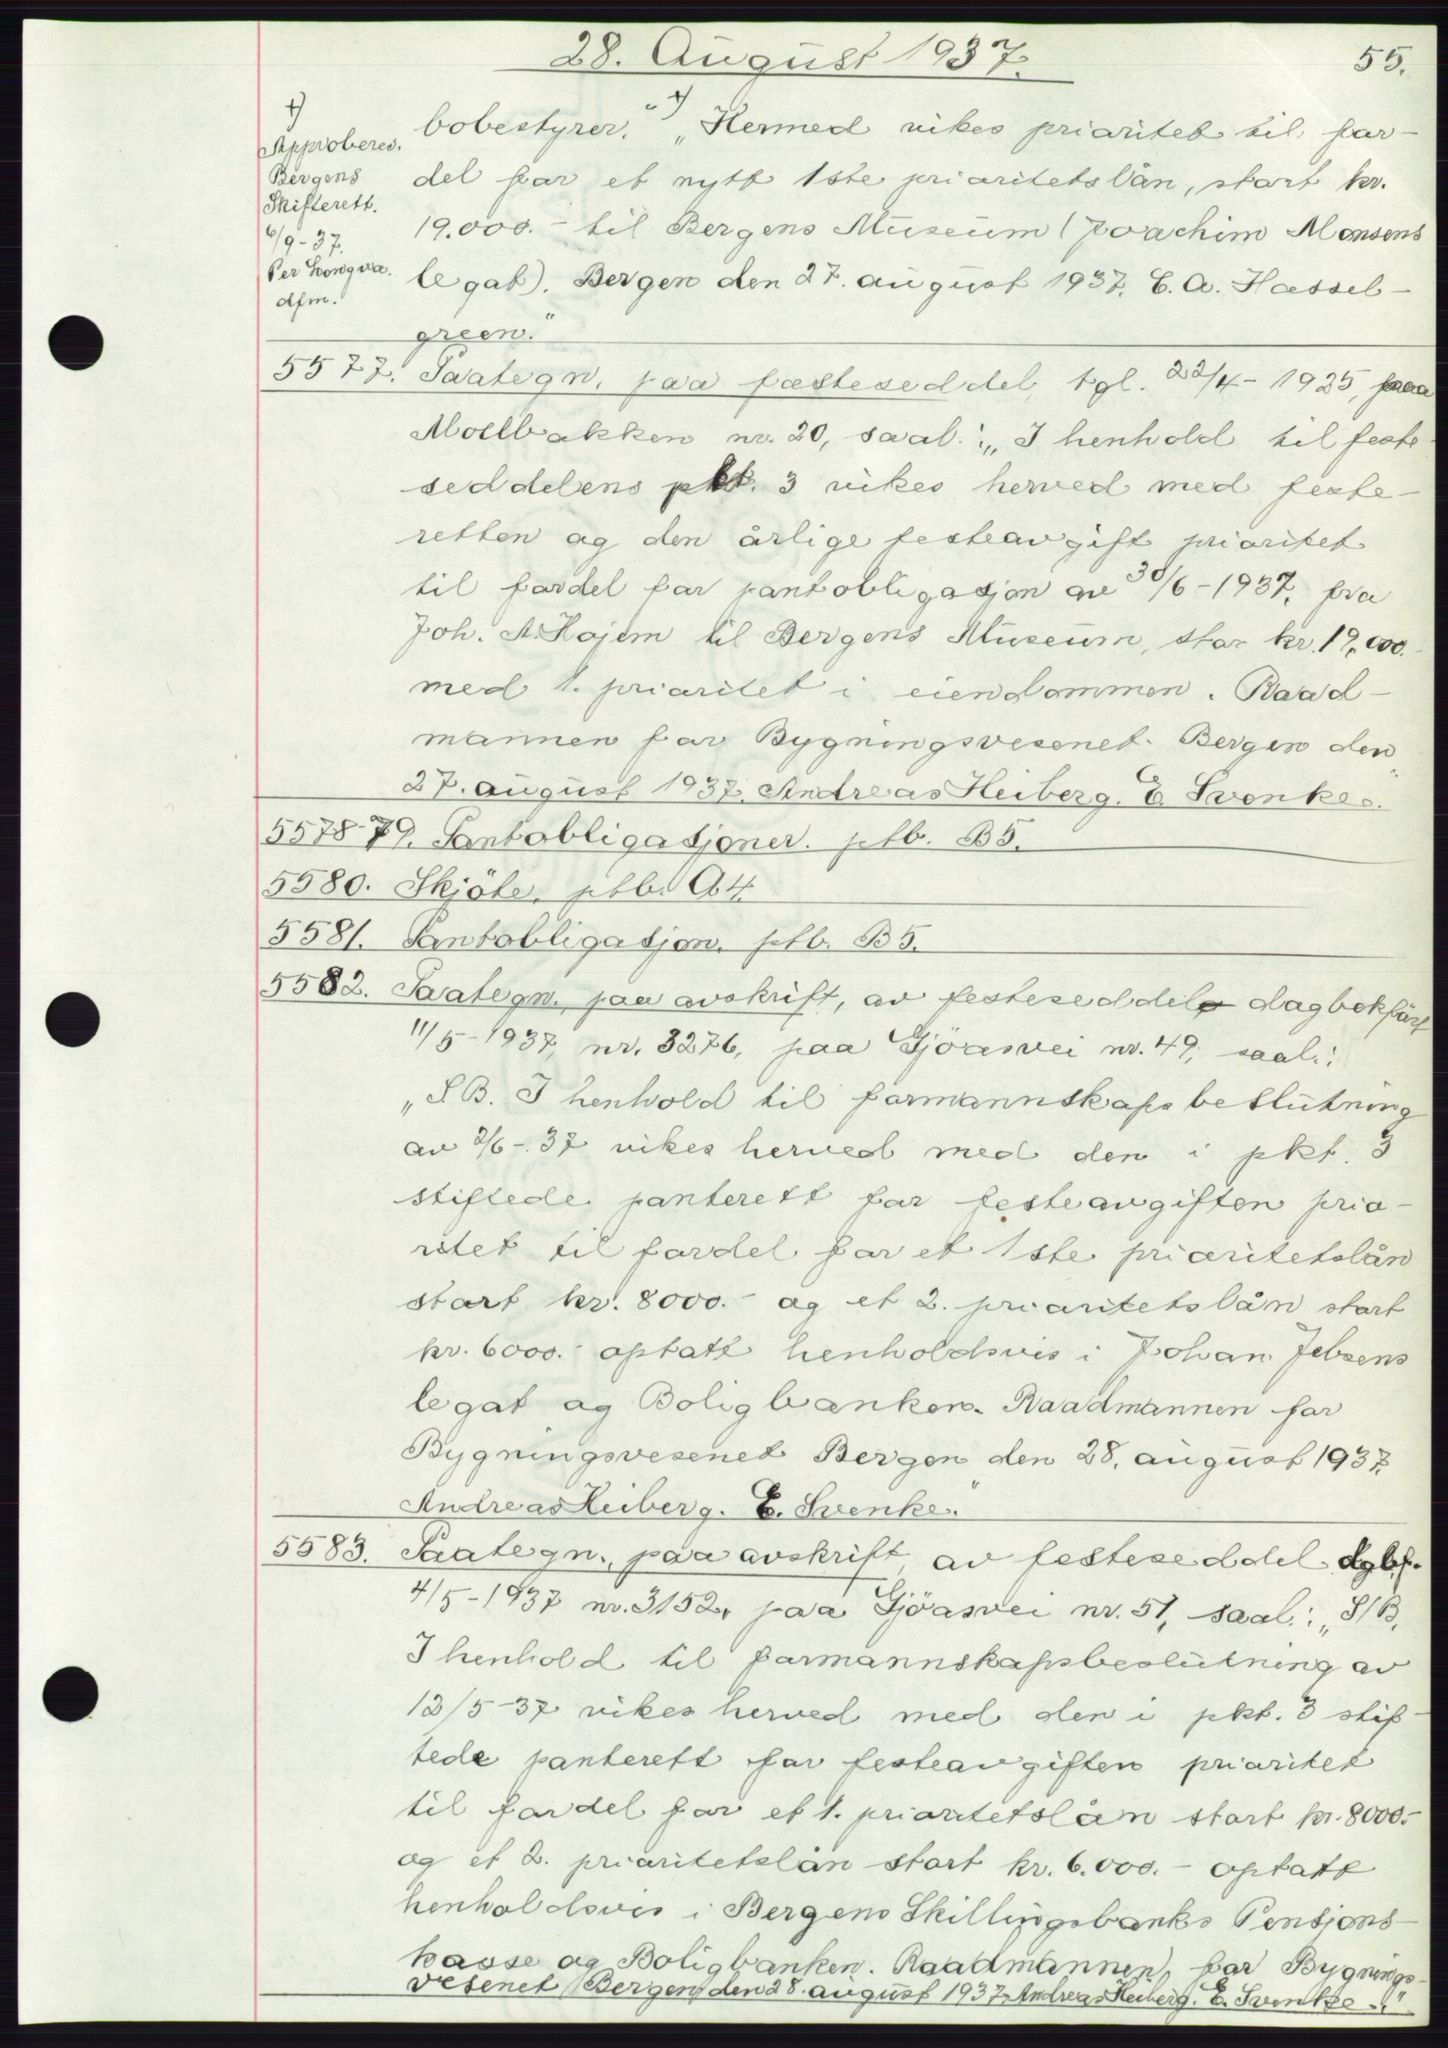 28. August 1937.
55.
+)
Approberes.
Bergens
Skifterett.
6/9-37.
Per
dfm.
bobestyrer." +) „Hermed vikes prioritet til for-
del for et nytt 1ste prioritetslån, stort kr.
19.000.- til Bergens Museum (Joachim Monsens
legat). Bergen den 27. august 1937. C. A. Hassel-
green."
5577. Paategn. paa festeseddel, tgl. 22/4-1925, paa
Mollbakken nr. 20, saal.: „I henhold til feste-
seddelens pkt. 3 vikes herved med feste-
retten og den årlige festeavgift prioritet
til fordel for pantobligasjon av 30/6-1937, fra
Joh. A. Hojem til Bergens Museum, stor kr. 19.000.-
med 1. prioritet i eiendommen. Raad-
mannen for Bygningsvesenet. Bergen den
27. august 1937. Andreas Heiberg. E. Svenke."
5578-79. Pantobligasjoner. ptb. B5.
5580. Skjöte. ptb. A4.
5581. Pantobligasjon. ptb. B5.
5582. Paategn. paa avskrift, av festeseddel dagbokfört
11/5-1937, nr. 3276, paa Gjöasvei nr. 49, saal.:
„S.B. I henhold til formannskapsbeslutning
av 2/6-37 vikes herved med den i pkt. 3
stiftede panterett for festeavgiften prio-
ritet til fordel for et 1ste prioritetslån
stort kr. 8000.- og et 2. prioritetslån stort
kr. 6000.- optatt henholdsvis i Johan Jebsens
legat og Boligbanken. Raadmannen for
Bygningsvesenet Bergen den 28. august 1937.
Andreas Heiberg. E. Svenke."
5583. Paategn. paa avskrift, av festeseddel dgbf.
4/5-1937 nr. 3152, paa Gjöasvei nr. 51, saal.: „S/B.
I henhold til formannskapsbeslutning av
12/5-37 vikes herved med den i pkt. 3 stif-
tede panterett for festeavgiften prioritet
til fordel for et 1. prioritetslån stort kr. 8000.-
og et 2. prioritetslån stort kr. 6.000.- optatt
henholdsvis i Bergens Skillingsbanks Pensjons-
kasse og Boligbanken. Raadmannen for Bygnings-
vesenet Bergen den 28. august 1937. Andreas Heiberg. E. Svenke."